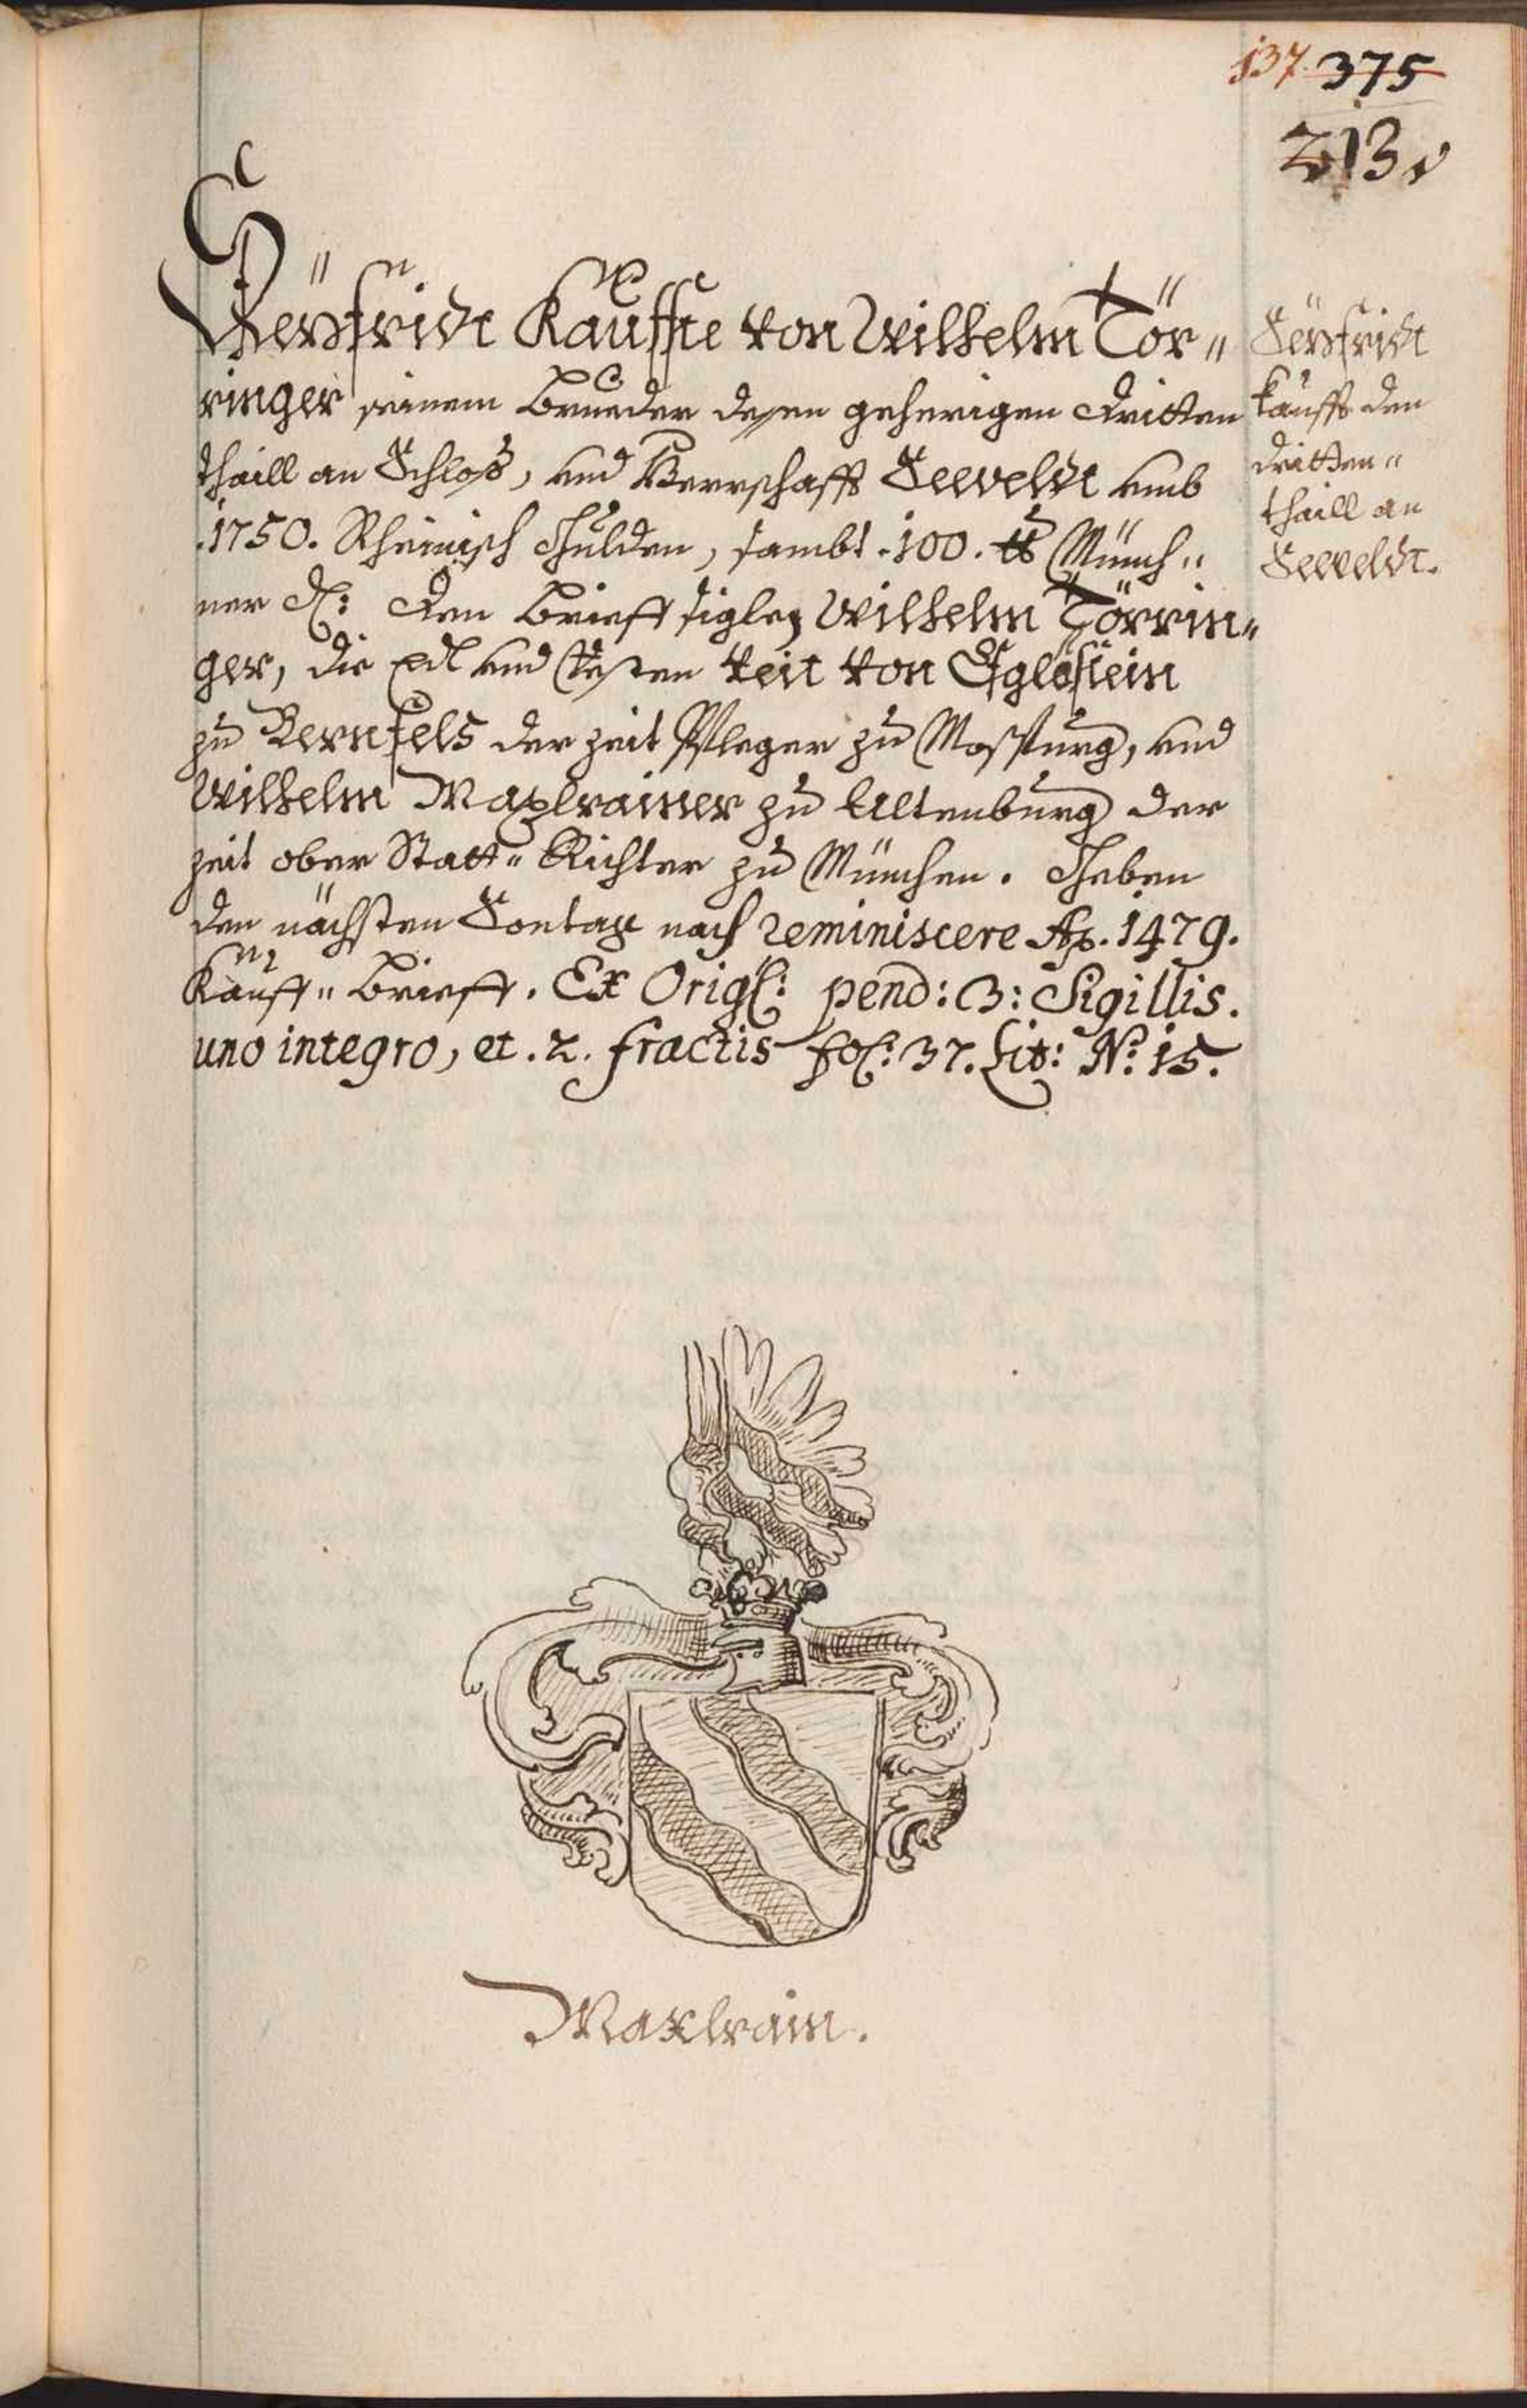 137. 375
213
Seyfridt Kauffte von Wilhelm Tör„
ringer seinem Brueder desen geherigen dritten
thaill an Schloß, und Herrschafft Seeveldt umb
.1750. Rheinisch Gulden, sambt .100. ℔ Münch„
ner ₰: den Brieff siglen Wilhelm Törrin„
ger, die Edl und Vesten Veit von Egloffstein
zu Bernfels der zeit Pfleger zu Mosspurg, und
Wilhelm Maxlrainer zu Altenburg der
zeit ober Statt„ Richter zu München. Geben
den nächsten Sontag nach Reminiscere Aō. 1479.
Kauff„ Brieff. Ex Origl: pend: 3: Sigillis.
uno integro, et .2. fractis fol: 37. Lit: N: 15.
Seyfridt
kaufft den
dritten„
thaill an
Seeveldt.
Maxlrain.